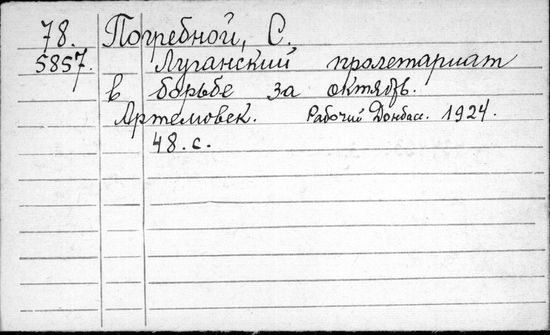 78. Погребной, С.
5857. Луганский пролетариат
в борьбе за октябь.
Артемовск. Рабочий Донбасс. 1924.
48. с.